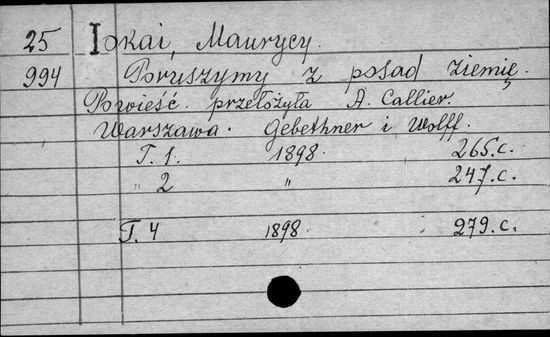 25 Iokai, Maurycy.
994 Poruszymy z posad ziemię.
Powieść. przełożyła A. Callier.
Warszawa. Gebethner i Wolff.
T. 1. 1898. 265. c.
" 2 " 247. c.
T. 4 1898. 279. c.